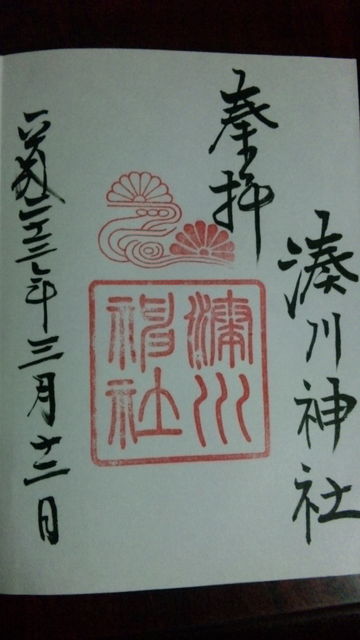 奉拝
湊川神社
湊川
神社
平成二十三年三月十二日